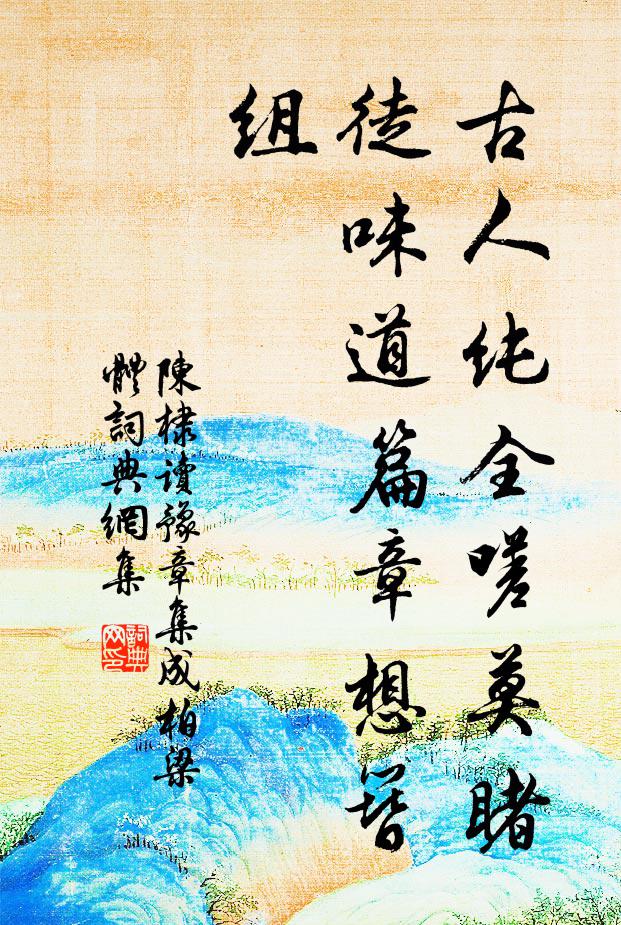 古人纯全嗟莫睹
徒味道篇章想簪
组
陳棣讀豫章集成柏梁
體詞典網集
詞典網印